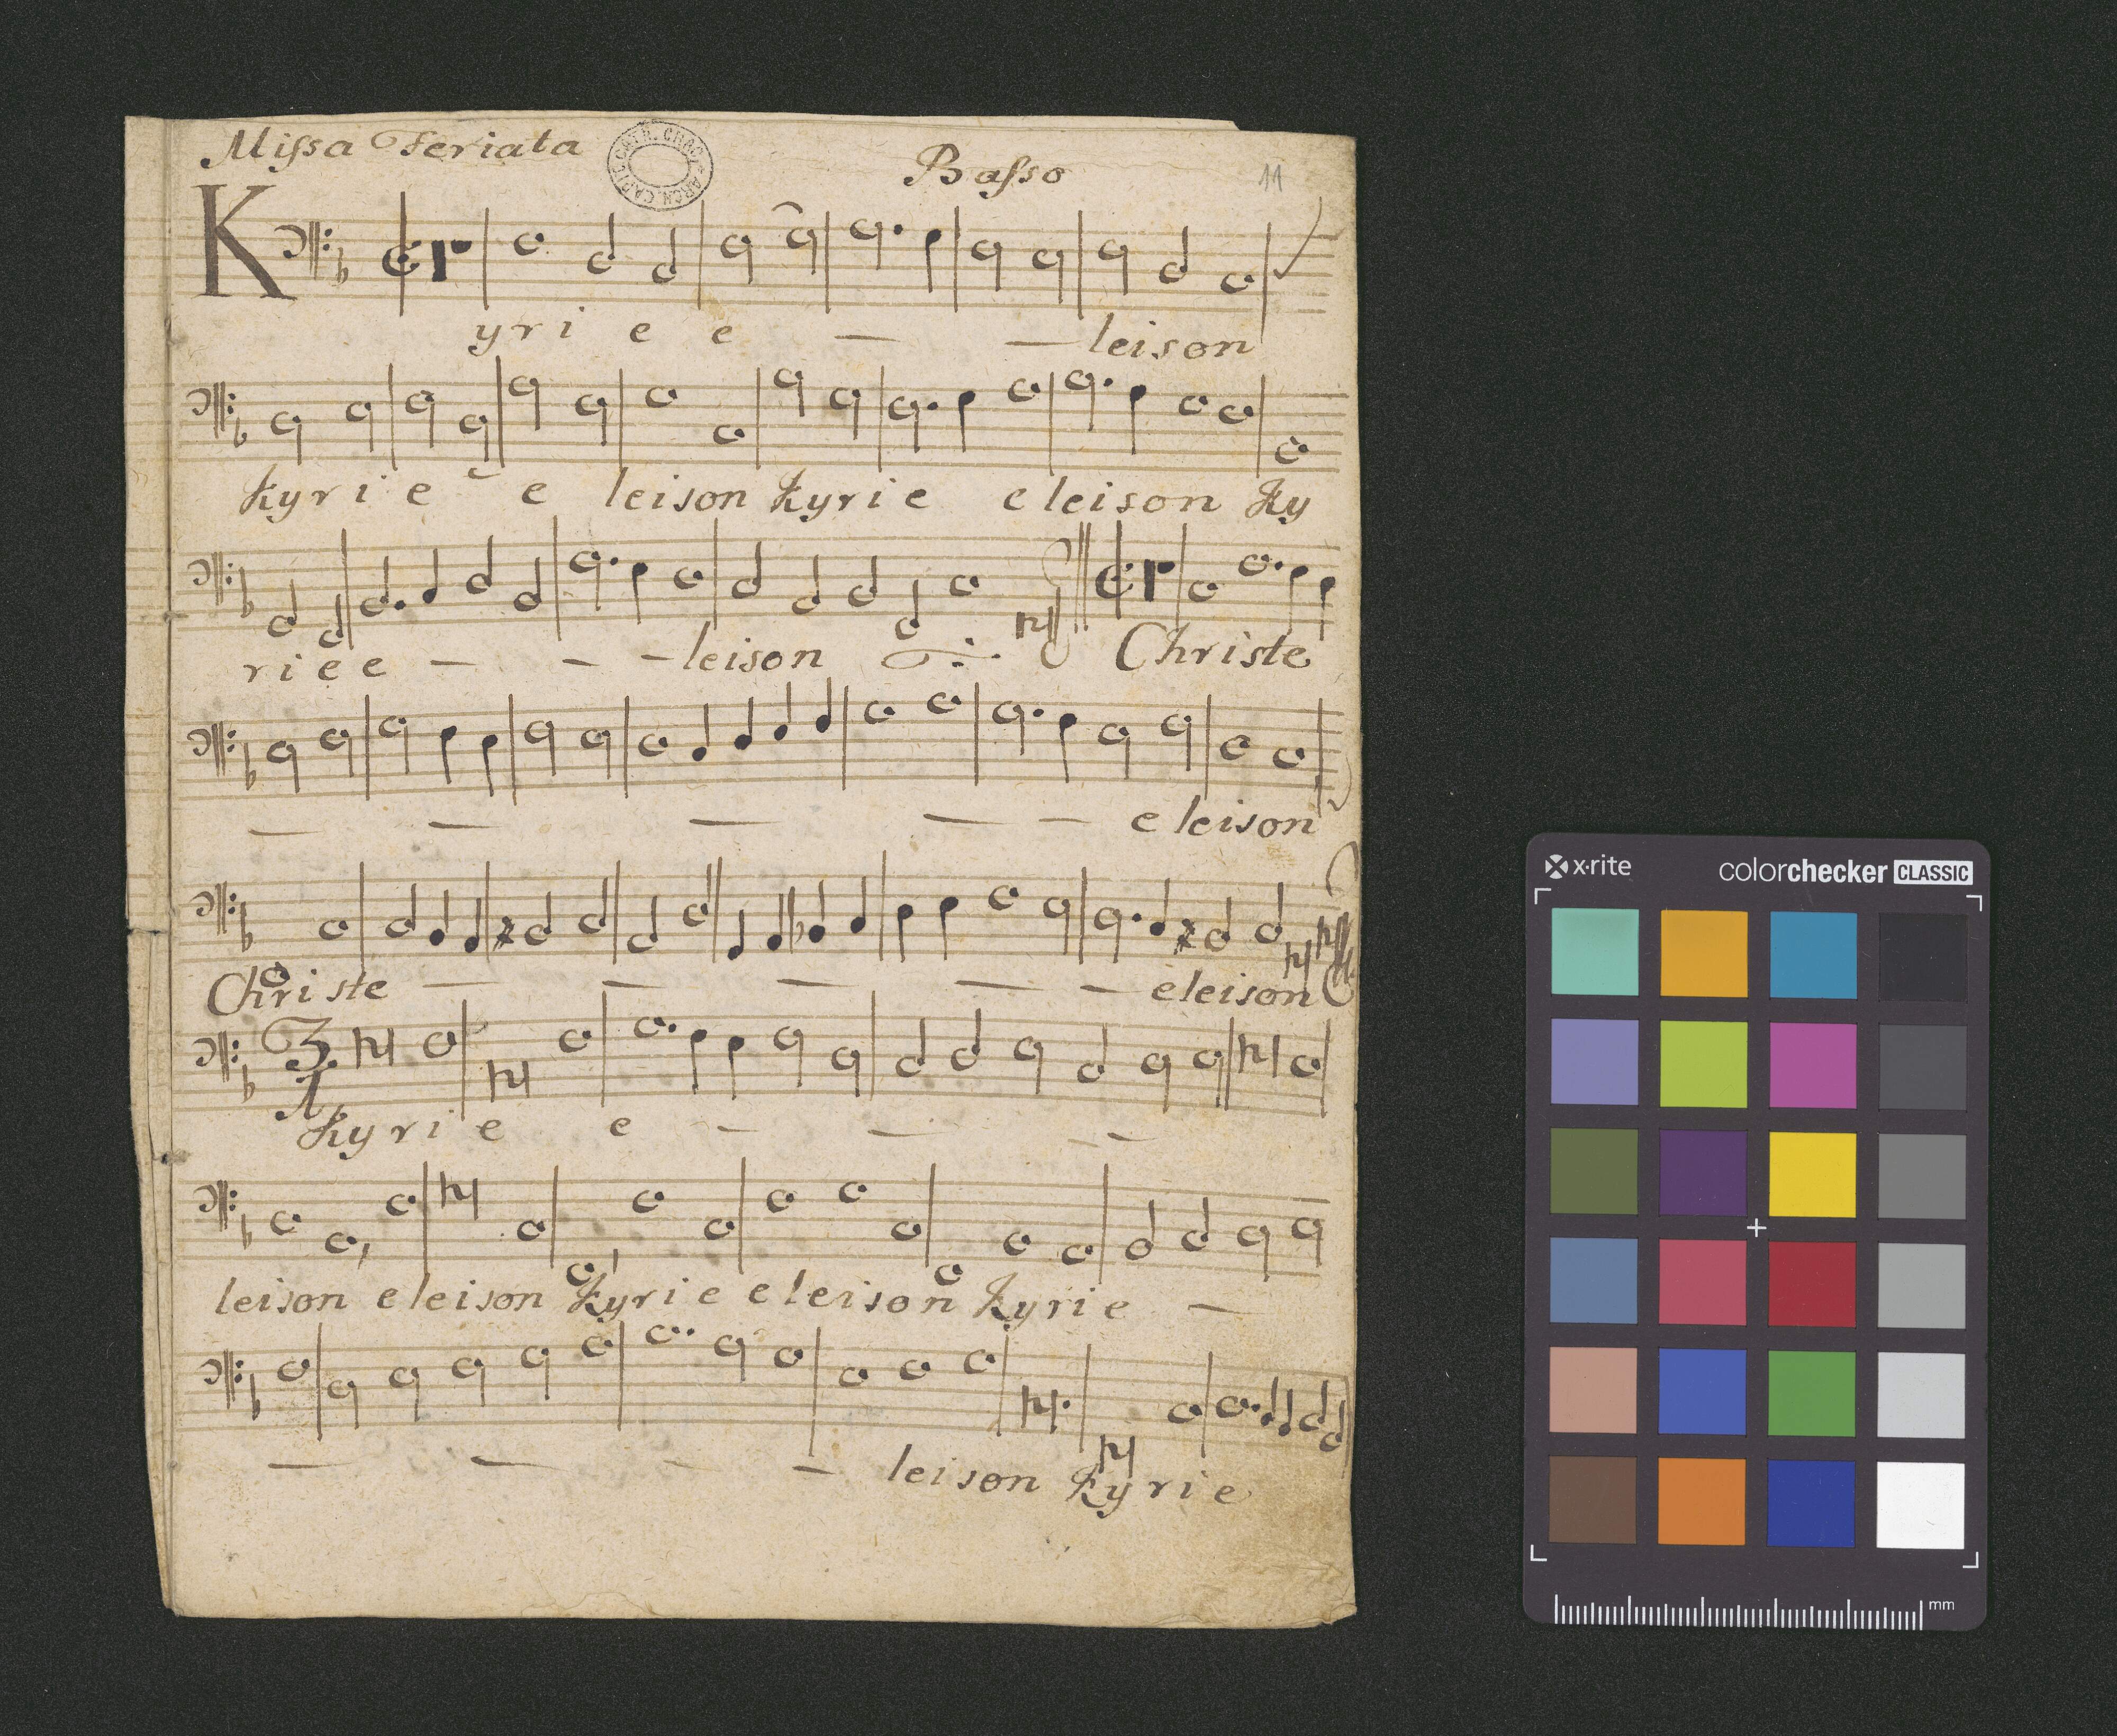 Missa Feriata
Basso
11
CAPIT. CATH. CRAC. ARCH.
Kyrie e — — leison
Kyrie e leison Kyrie eleison Ky
rie e — — — leison Christe
— — — — — eleison
Christe — — — — — eleison
3
1
Kyrie e — — — —
leison eleison Kyrie eleison Kyrie —
— — — — leison Kyrie
x·rite
colorchecker CLASSIC
mm